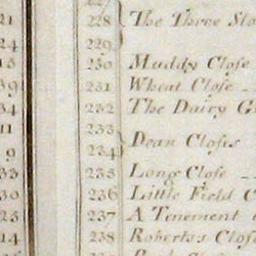 228 The Three
24 229
230 Muddy Close
39 231 Wheat Close
34 232 The Dairy
11 233
Dean Closes
9 234
33 235 Long Close
30 236 Little Field
23 237 A Tenement
14 238 Robertos Close